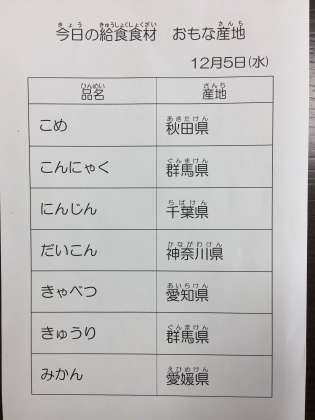 今日の給食食材　おもな産地
12月5日(水)
品名　産地
こめ　秋田県
こんにゃく　群馬県
にんじん　千葉県
だいこん　神奈川県
きゃべつ　愛知県
きゅうり　群馬県
みかん　愛媛県